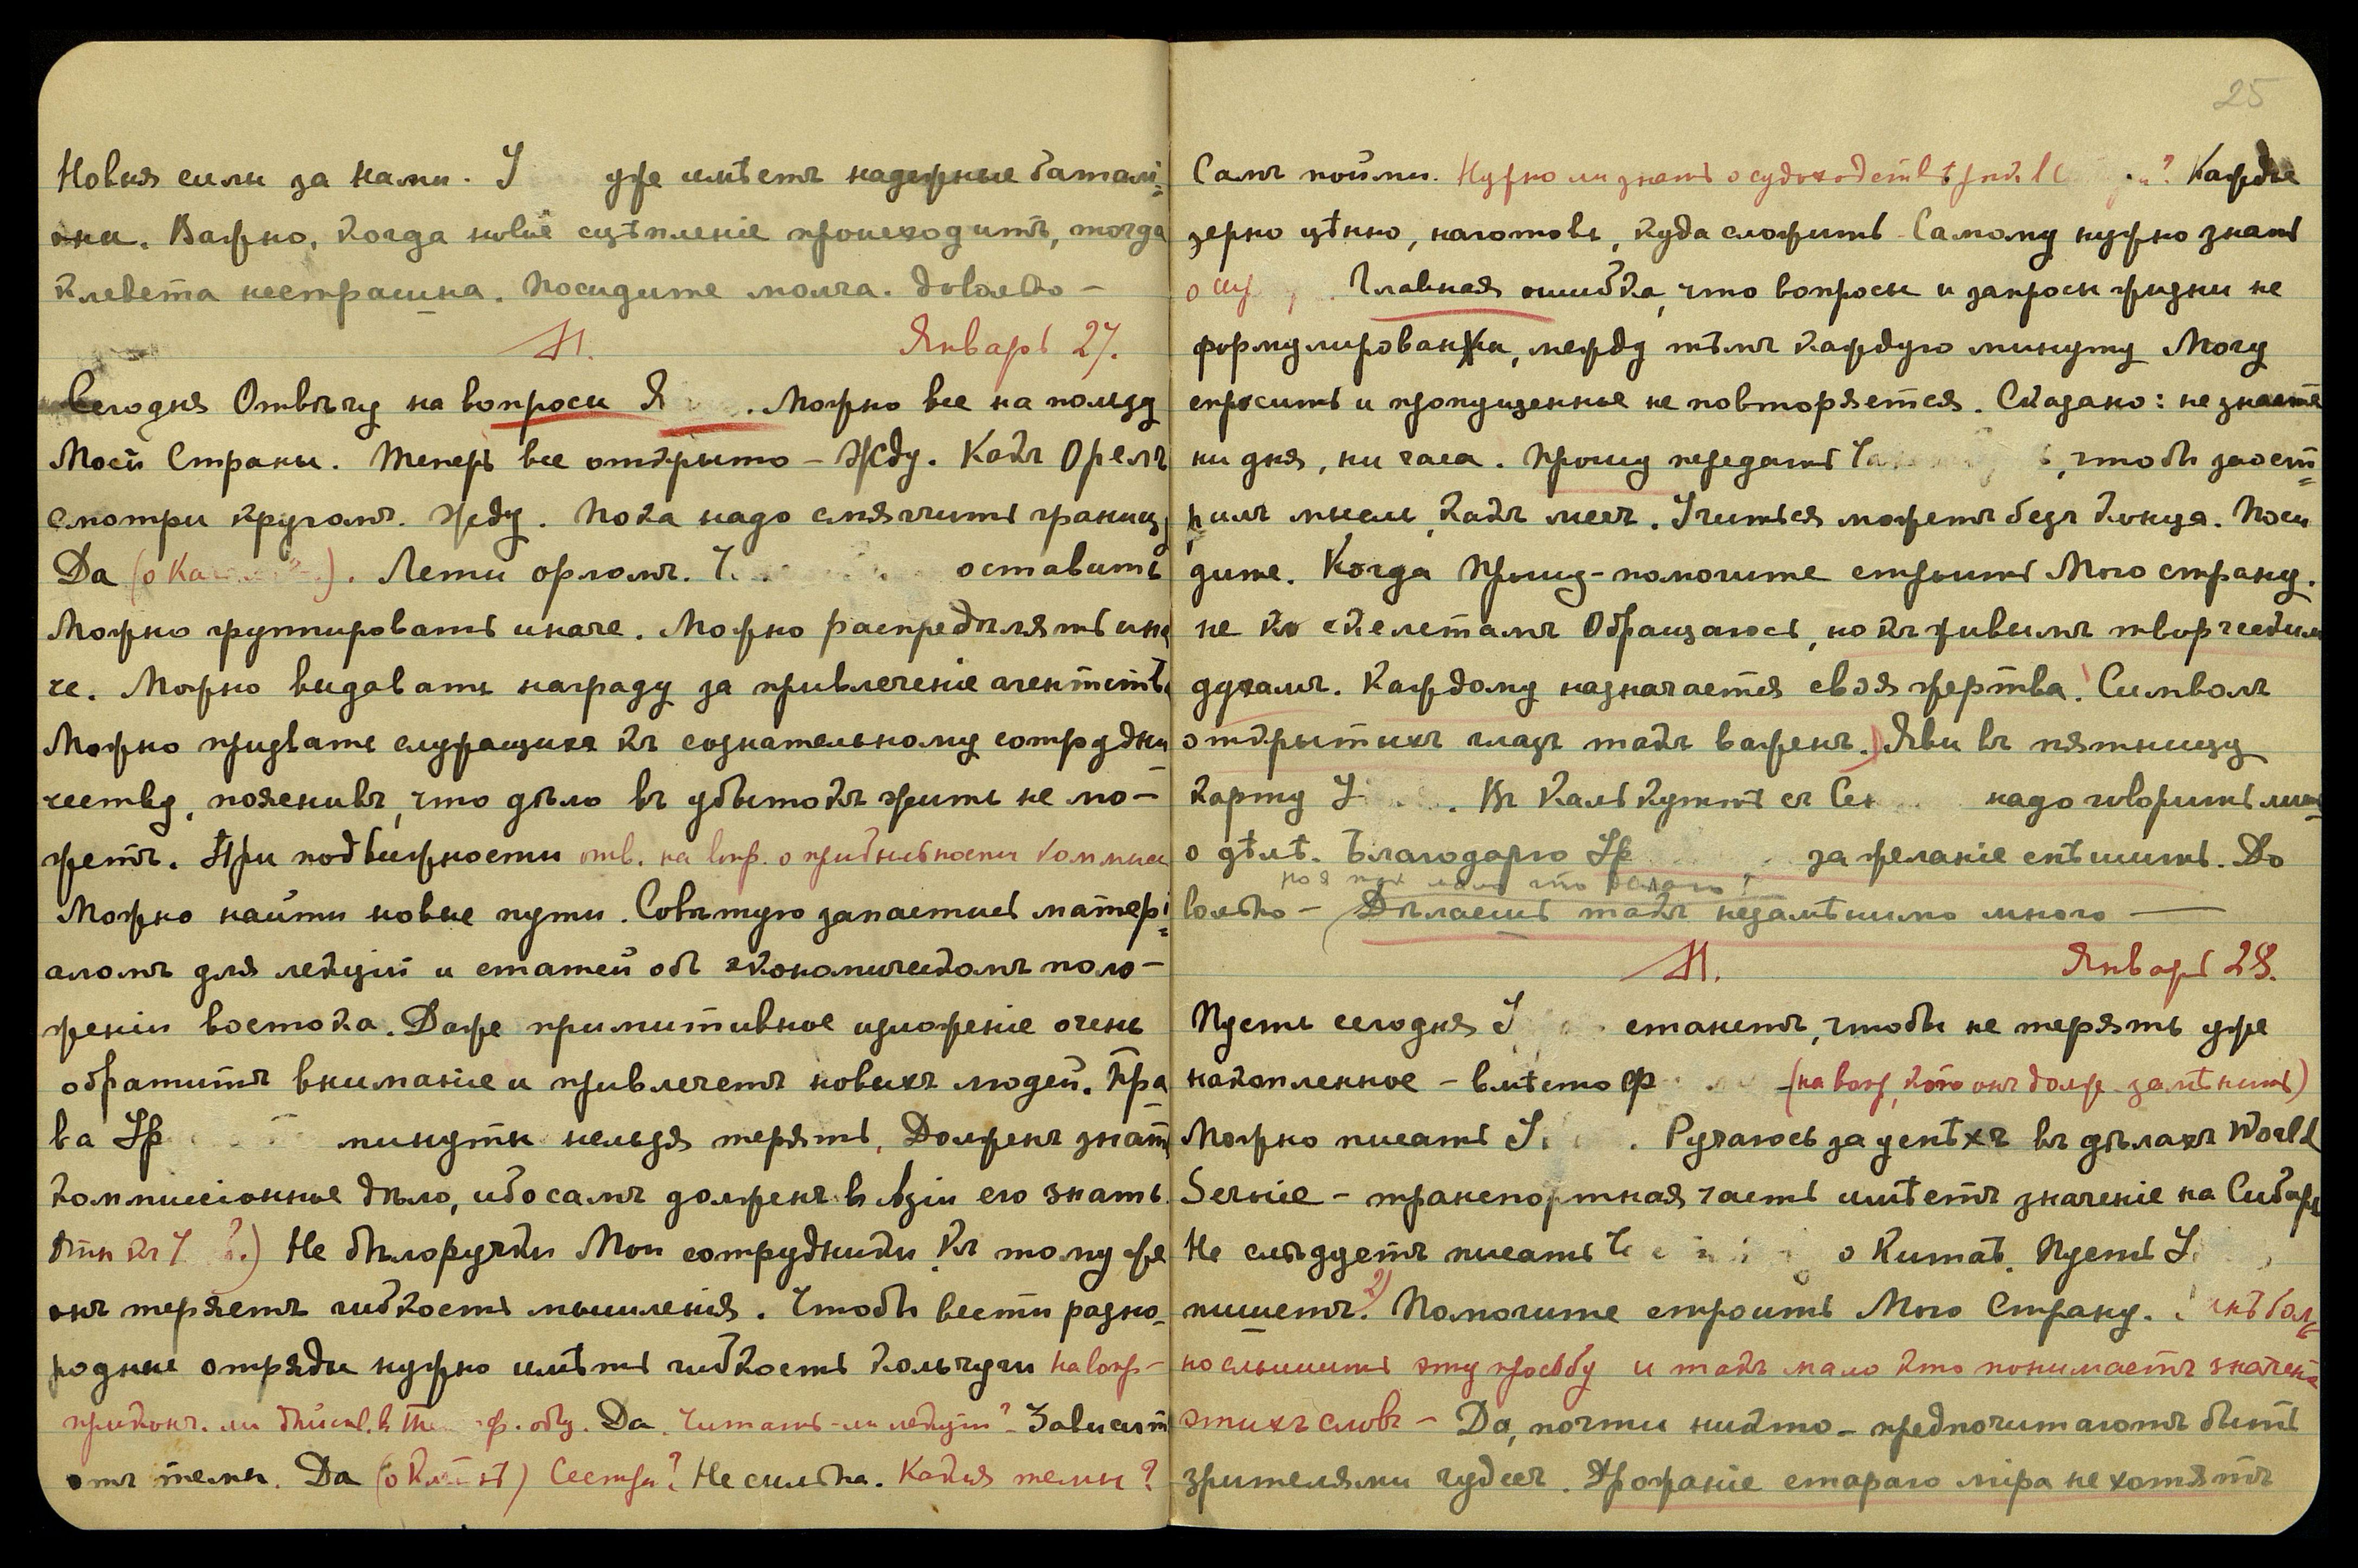 Новыя силы за нами. У уже имѣетъ надежные баталі=
оны. Важно, когда новыя сцѣпленіе происходитъ, тогда
клевета нестрашна. Посидите молча. Довольно –
Январь 27.
Сегодня Отвѣчу на вопросы Я . Можно все на пользу
Моей Страны. Теперь все открыто – Жду. Какъ Орелъ
смотри кругомъ. Жду. Пока надо смягчить границу
Да (о Ка ). Лети орломъ. оставить
Можно группировать иначе. Можно распредѣлять ина
че. Можно выдавать награду за привлеченіе агентствъ
Можно призвать служащихъ къ сознательному сотрудни
честву, пояснивъ, что дѣло въ убытокъ жить не мо–
жетъ. При подвижности отв. на вопр. о прибыльности коммисі
Можно найти новые пути. Совѣтую запастись матері=
аломъ для лекцій и статей объ экономическомъ поло–
женіи востока. Даже примитивное изложеніе очень
обратитъ вниманіе и привлечетъ новыхъ людей. Пра
ва минуты нельзя терять. Долженъ знать
коммиссіонное дѣло, ибо самъ долженъ въ Азіи его знать.
Не бѣлоручки Мои сотрудники. Къ тому же
онъ теряетъ гибкость мышленія. Чтобы вести разно–
родные отряды нужно имѣть гибкость кольчуги на вопр–
Да. Читать-ли лекціи? – Зависитъ
отъ темы. Да Сестры? Не сильна. Какія темы?
25
Самъ пойми. Нужно ли знать о судоходствѣ Каждое
зерно цѣнно, наготовь, куда сложить. Самому нужно знать
о Главная ошибка, что вопросы и запросы жизни не
формулированы, между тѣмъ каждую минуту Могу
спросить и пропущенное не повторяется. Сказано: не знаете
ни дня, ни часа. Прошу передать , чтобы заост=
рилъ мысль, какъ мечъ. Учиться можетъ безъ конца. Поси
дите. Когда Прошу – помогите строить Мою страну.
не ко скелетамъ Обращаюсь, но къ живымъ творческимъ
духамъ. Каждому назначается своя жертва. Символъ
открытыхъ глазъ такъ важенъ. Яви въ пятницу
карту У . Въ Калькуттѣ съ надо говорить лишь
о дѣлѣ. Благодарю за желаніе спѣшить. До
но я такъ мало что дѣлаю?
вольно – Дѣлаешь такъ незамѣнимо много –
Январь 28.
Пусть сегодня станетъ, чтобы не терять уже
накопленное – вмѣсто Ф (на вопр. кого онъ долж. замѣнить)
Можно писать . Ручаюсь за успѣхъ въ дѣлахъ World
Service – транспортная часть имѣетъ значеніе на Сибирь
Не слѣдуетъ писать о Китаѣ. Пусть
пишетъ. 2) Помогите строить Мою Страну. бол=
но слышить эту просьбу и такъ мало кто понимаетъ значеніе
этихъ словъ – Да, почти никто – предпочитаютъ быть
зрителями чудесъ. Дрожаніе стараго міра не хотятъ